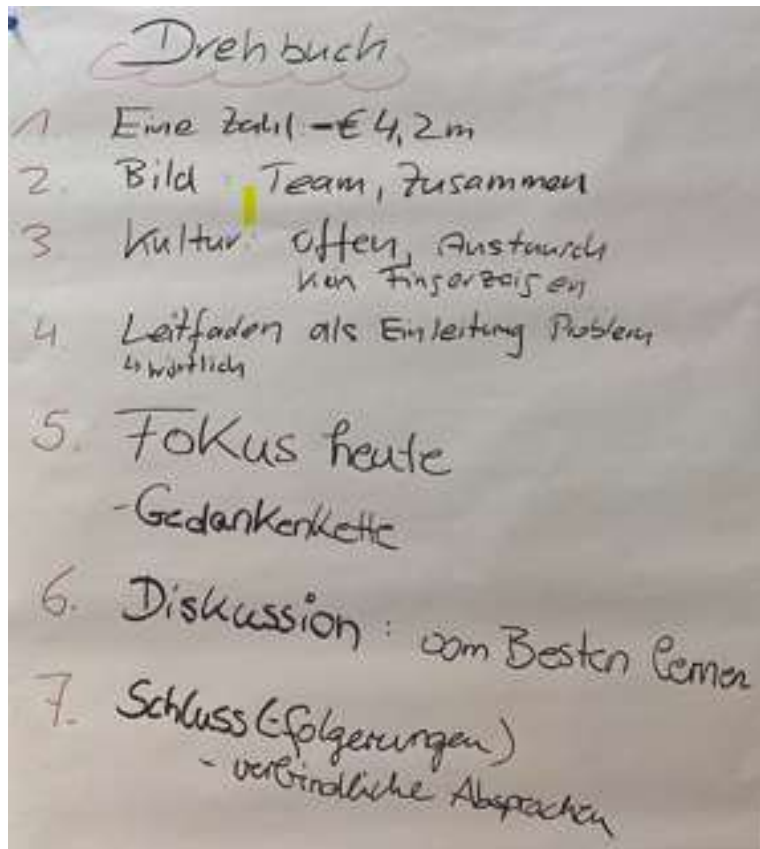 Drehbuch
1. Eine Zahl -€ 4,2m
2. Bild : Team, Zusammen
3 Kultur: Offen, Austausch
kein Fingerzeigen
4 Leitfaden als Einleitung Problem
↳ wörtlich
5. Fokus heute
- Gedankenkette
6. Diskussion : vom Besten lernen
7. Schluss(-folgerungen)
- verbindliche Absprachen